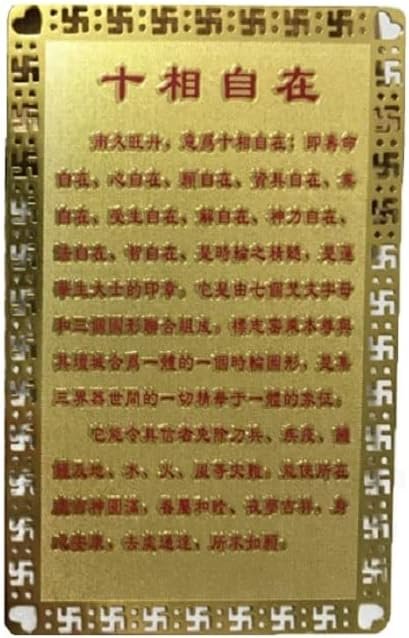 十相自在
南久旺丹，意爲十相自在：即壽命
自在、心自在、願自在、資具自在、業
自在、受生自在、解自在、神力自在、
法自在、智自在、是時輪之精髓，是蓮
華生大士的印章。它是由七個梵文字母
和三個圖形聯合組成，標志密乘本尊與
其壇城合爲一體的一個時輪圖形，是集
三界器世間的一切精華于一體的象征。
它能令具信者免除刀兵、疾疫、
及地、水、火、風等灾難，能使所在
吉祥圓滿，眷屬和睦、夜夢吉祥，身
安康，去處通達，所求如願。